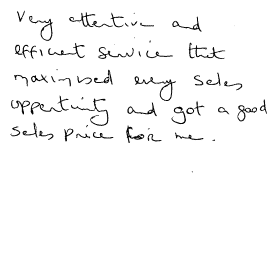 Very attentive and
efficient service that
maximised every sales
oppertunity and got a good
sales price for me.